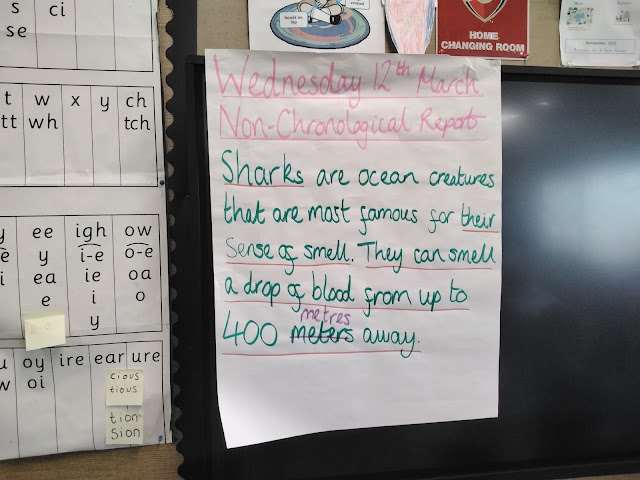 s ci
se
t w x y ch
tt wh tch
y ee igh ow
-e y i-e o-e
i ea ie oa
e i o
y
u oy ire ear ure
w oi
cious
tious
tion
sion
HOME
CHANGING ROOM
Wednesday 12th March
Non-Chronological Report
Sharks are ocean creatures
that are most famous for their
sense of smell. They can smell
a drop of blood from up to
metres
400 meters away.